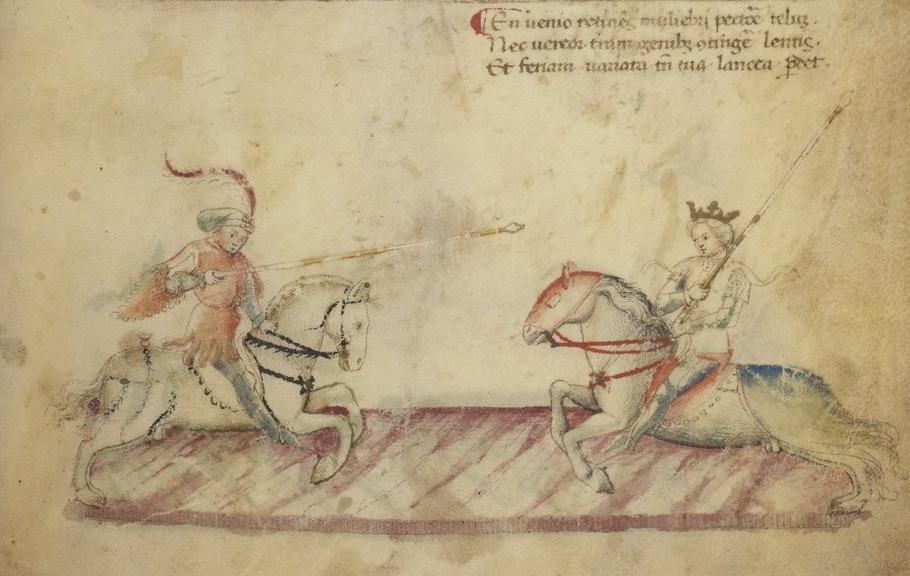 ¶ En uenio retines muliebri pectore teluȝ.
Nec uereor gerubȝ ɔtingē lentis.
Et feriam uariata tn̄ tua lancea ꝑdet.